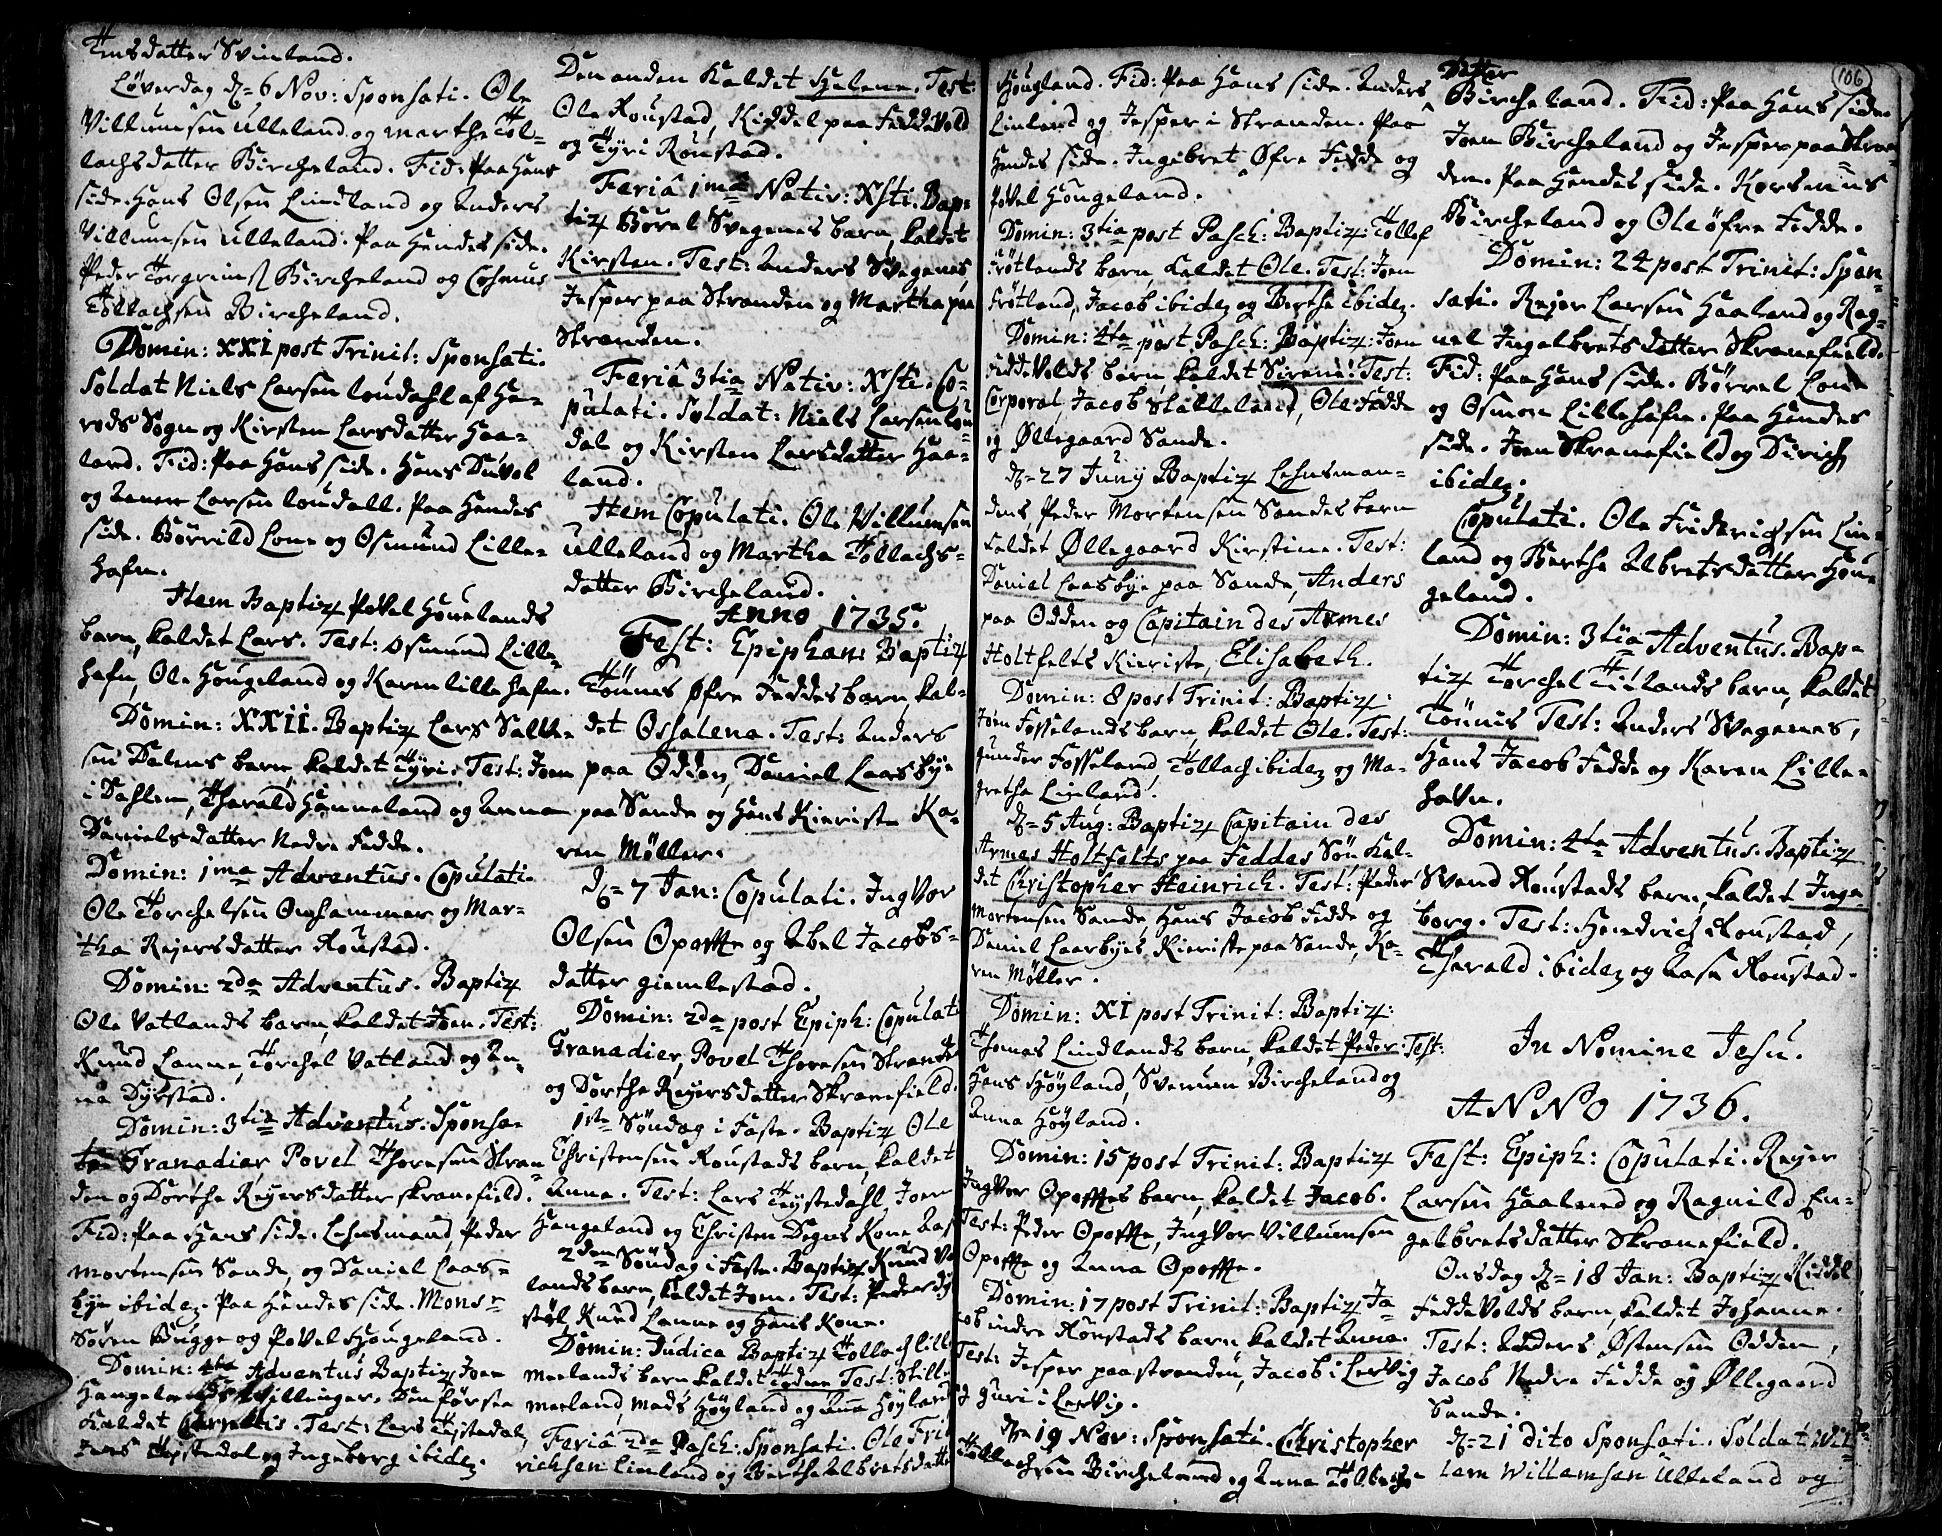 Tensdatter Svinland.
Löverdag d. 6 Nov: Sponsati. Ole
Villumsen Ulleland og Marthe Tol-
lachsdatter Bircheland. Fid: Paa Hans
side. Hans Olsen Lindland og Anders
Villumsen Ulleland. Paa Hendes side.
Peder Torgrims Bircheland og Cosmus
Tollachsen Bircheland.
Domin: XXI post Trinit: Sponsati.
Soldat Niels Larsen Loudahl af He-
rods Sogn og Kirsten Larsdatter Haa-
land. Fid: Paa Hans side. Hans Duvol
og Larsen Loudall. Paa Hendes
side. Börrild Lone og Osmund Lille-
hafn.
Item Baptiz Povel Houelands
barn, kaldet Lars. Test: Osmund Lille-
hafn, Ole Hougeland og Karen Lillehafn.
Domin: XXII. Baptiz Lars Salve
sen Dalens barn, kaldet Tyri. Test: Joen
i Dahlen, Tharald Hamneland og Anna
Danielsdatter Nedre Fedde.
Domin: 1ma Adventus. Copulati.
Ole Torchelsen Omhammer og Mar-
tha Rejersdatter Roustad.
Domin: 2da Adventus. Baptiz
Ole Vatlands barn, kaldet Joen. Test:
Knud Lanne, Torchel Vatland og An-
na Dybstad.
Domin: 3tia Adventus. Sponsa-
ti Granadier Povel Thoresen Stran
den og Dorthe Reyersdatter Skranefield.
Fid: Paa Hans side. Lehnsmand, Peder
Mortensen Sande, og Daniel Laas-
bye ibidez. Paa Hendes side. Monsr
Sören Bugge og Povel Hougeland.
Domin: 4ta Adventus Baptiz Joen
Hangelands Tvillinger. Den förste
kaldet. Test: Lars Tistedal,
Tystedal og Ingeborg ibidez.
Den anden kaldet Helene. Test:
Ole Roustad, Kiddel paa Feddevold
og Tyri Roustad.
Feriâ 1ma Nativ: Xsti. Bap-
tiz Börrel Svegenes barn, kaldet
Kirsten. Test: Anders Svegenes,
Jesper paa Stranden og Martha paa
Stranden.
Feriâ 3tia Nativ: Xsti. Co-
pulati. Soldat: Niels Larsen Lou-
dal og Kirsten Larsdatter Haa-
land.
Item Copulati. Ole Villumsen
Ulleland og Martha Tollachs-
datter Bircheland.
Anno 1735.
Fest: Epiphan: Baptiz
Tönnes Øfre Feddes barn, kal-
det Ossalena. Test: Anders
paa Odden, Daniel Laasbye
paa Sande og Hans Kieriste Ka-
ren Møller.
d. 7 Jan: Copulati. Ingvor
Olsen Opofte og Abel Jacobs-
datter Giemlestad.
Domin: 2da post Epiph: Copulati
Granadier, Povel Thoresen Stranden
og Dorthe Reyersdatter Skranefield.
1ste Söndag i Faste. Baptiz Ole
Christensen Roustads barn, kaldet
Anna. Test: Lars Tystedahl, Joen
Hangeland og Christen Degns Kone
2den Söndag i Faste. Baptiz Knud Va
lands barn, kaldet Joen. Test: Peder
Knud Lanne og Hans Kone.
Domin: Judica Baptiz Tollach Lille
meelands barn kaldet Test:
meeland, Mads Høyland og Høyland
Feriâ 2da Pasch: Sponsati. Ole Frid
richsen Linland og Berthe Albretsdatter
Hougland. Fid: Paa Hans side. Anders
Linland og Jesper i Stranden. Paa
Hendes side. Ingebret Øfre Fedde og
Povel Hougeland.
Domin: 3tia post Pasch: Baptiz: Tollef
Frötlands barn, kaldet Ole. Test: Joen
Frötland, Jacob ibidez og Berthe ibidez.
Domin: 4ta post Pasch: Baptiz: Joen
Feddevolds barn, kaldet Sirene. Test:
Corporal Jacob Stalleland, Ole Fedde
og Øllegaard Sande.
d. 27 Junij Baptiz Lehnsman-
dens, Peder Mortensen Sandes barn
kaldet Øllegaard Kirstine. Test:
Daniel Laasbye paa Sande, Anders
paa Odden og Capitain des Armes
Holtfelts Kieriste, Elisabeth.
Domin: 8 post Trinit: Baptiz:
Joen Fosselands barn, kaldet Ole. Test:
Gunder Fosseland, Tollach ibidez og Ma-
grethe Linland.
d. 5 Aug: Baptiz Capitain des
Armes Holtfelts paa Feddes Sön kal-
det Christopher Heinrich. Test: Peder
Mortensen Sande, Hans Jacob Fedde og
Daniel Laasbyes Kieriste paa Sande, Ka-
ren Møller.
Domin: XI post Trinit: Baptiz:
Thomas Lindlands barn, kaldet Peder. Test:
Hans Høyland, Svenum Bircheland og
Anna Høyland.
Domin: 15 post Trinit: Baptiz
Ingvor Opoftes barn, kaldet Jacob.
Test: Peder Opofte, Ingvor Villumsen
Opofte og Anna Opofte.
Domin: 17 post Trinit: Baptiz Ja-
cob indre Roustads barn kaldet Anna.
Test: Jesper paa Stranden, Jacob i Lervig
og Guri i Lervig.
d. 19 Nov: Sponsati. Christopher
Tollachsen Bircheland og Anna Tolbechs
Datter 106
Bircheland. Fid: Paa Hans side.
Joen Bircheland og Jesper paa Stran-
den. Paa Hendes side. Korsmus
Bircheland og Ole öfre Fedde.
Domin: 24 post Trinit: Spon-
sati. Rejer Larsen Haaland og Rag-
nel Ingelbretsdatter Skranefield.
Fid: Paa Hans side. Börrel Lone
og Osmon Lillehafn. Paa Hendes
side. Joen Skranefield og Dirich
ibidez.
Copulati. Ole Friderichsen Lin-
land og Berthe Albretsdatter Hou-
geland.
Domin: 3tia Adventus. Bap-
tiz Torchel Tilands barn, kaldet
Tönnis Test: Anders Svegenes,
Hans Jacob Fedde og Karen Lille-
havn.
Domin: 4ta Adventus. Baptiz
Svend Roustads barn, kaldet Inge-
borg. Test: Hendrich Roustad,
Tharald ibidez og Aasa Roustad.
In Nomine Jesu.
ANNO 1736.
Fest: Epiph: Copulati. Reyer
Larsen Haaland og Ragnild En-
gelbretsdatter Skranefield.
Onsdag d. 18 Jan: Baptiz Kiddel
Feddevolds barn, kaldet Johanne.
Test: Anders Østensen Odden,
Jacob Nedre Fedde og Øllegaard
Sande.
d. 21 dito Sponsati. Soldat Wil-
lem Willemsen Ulleland og